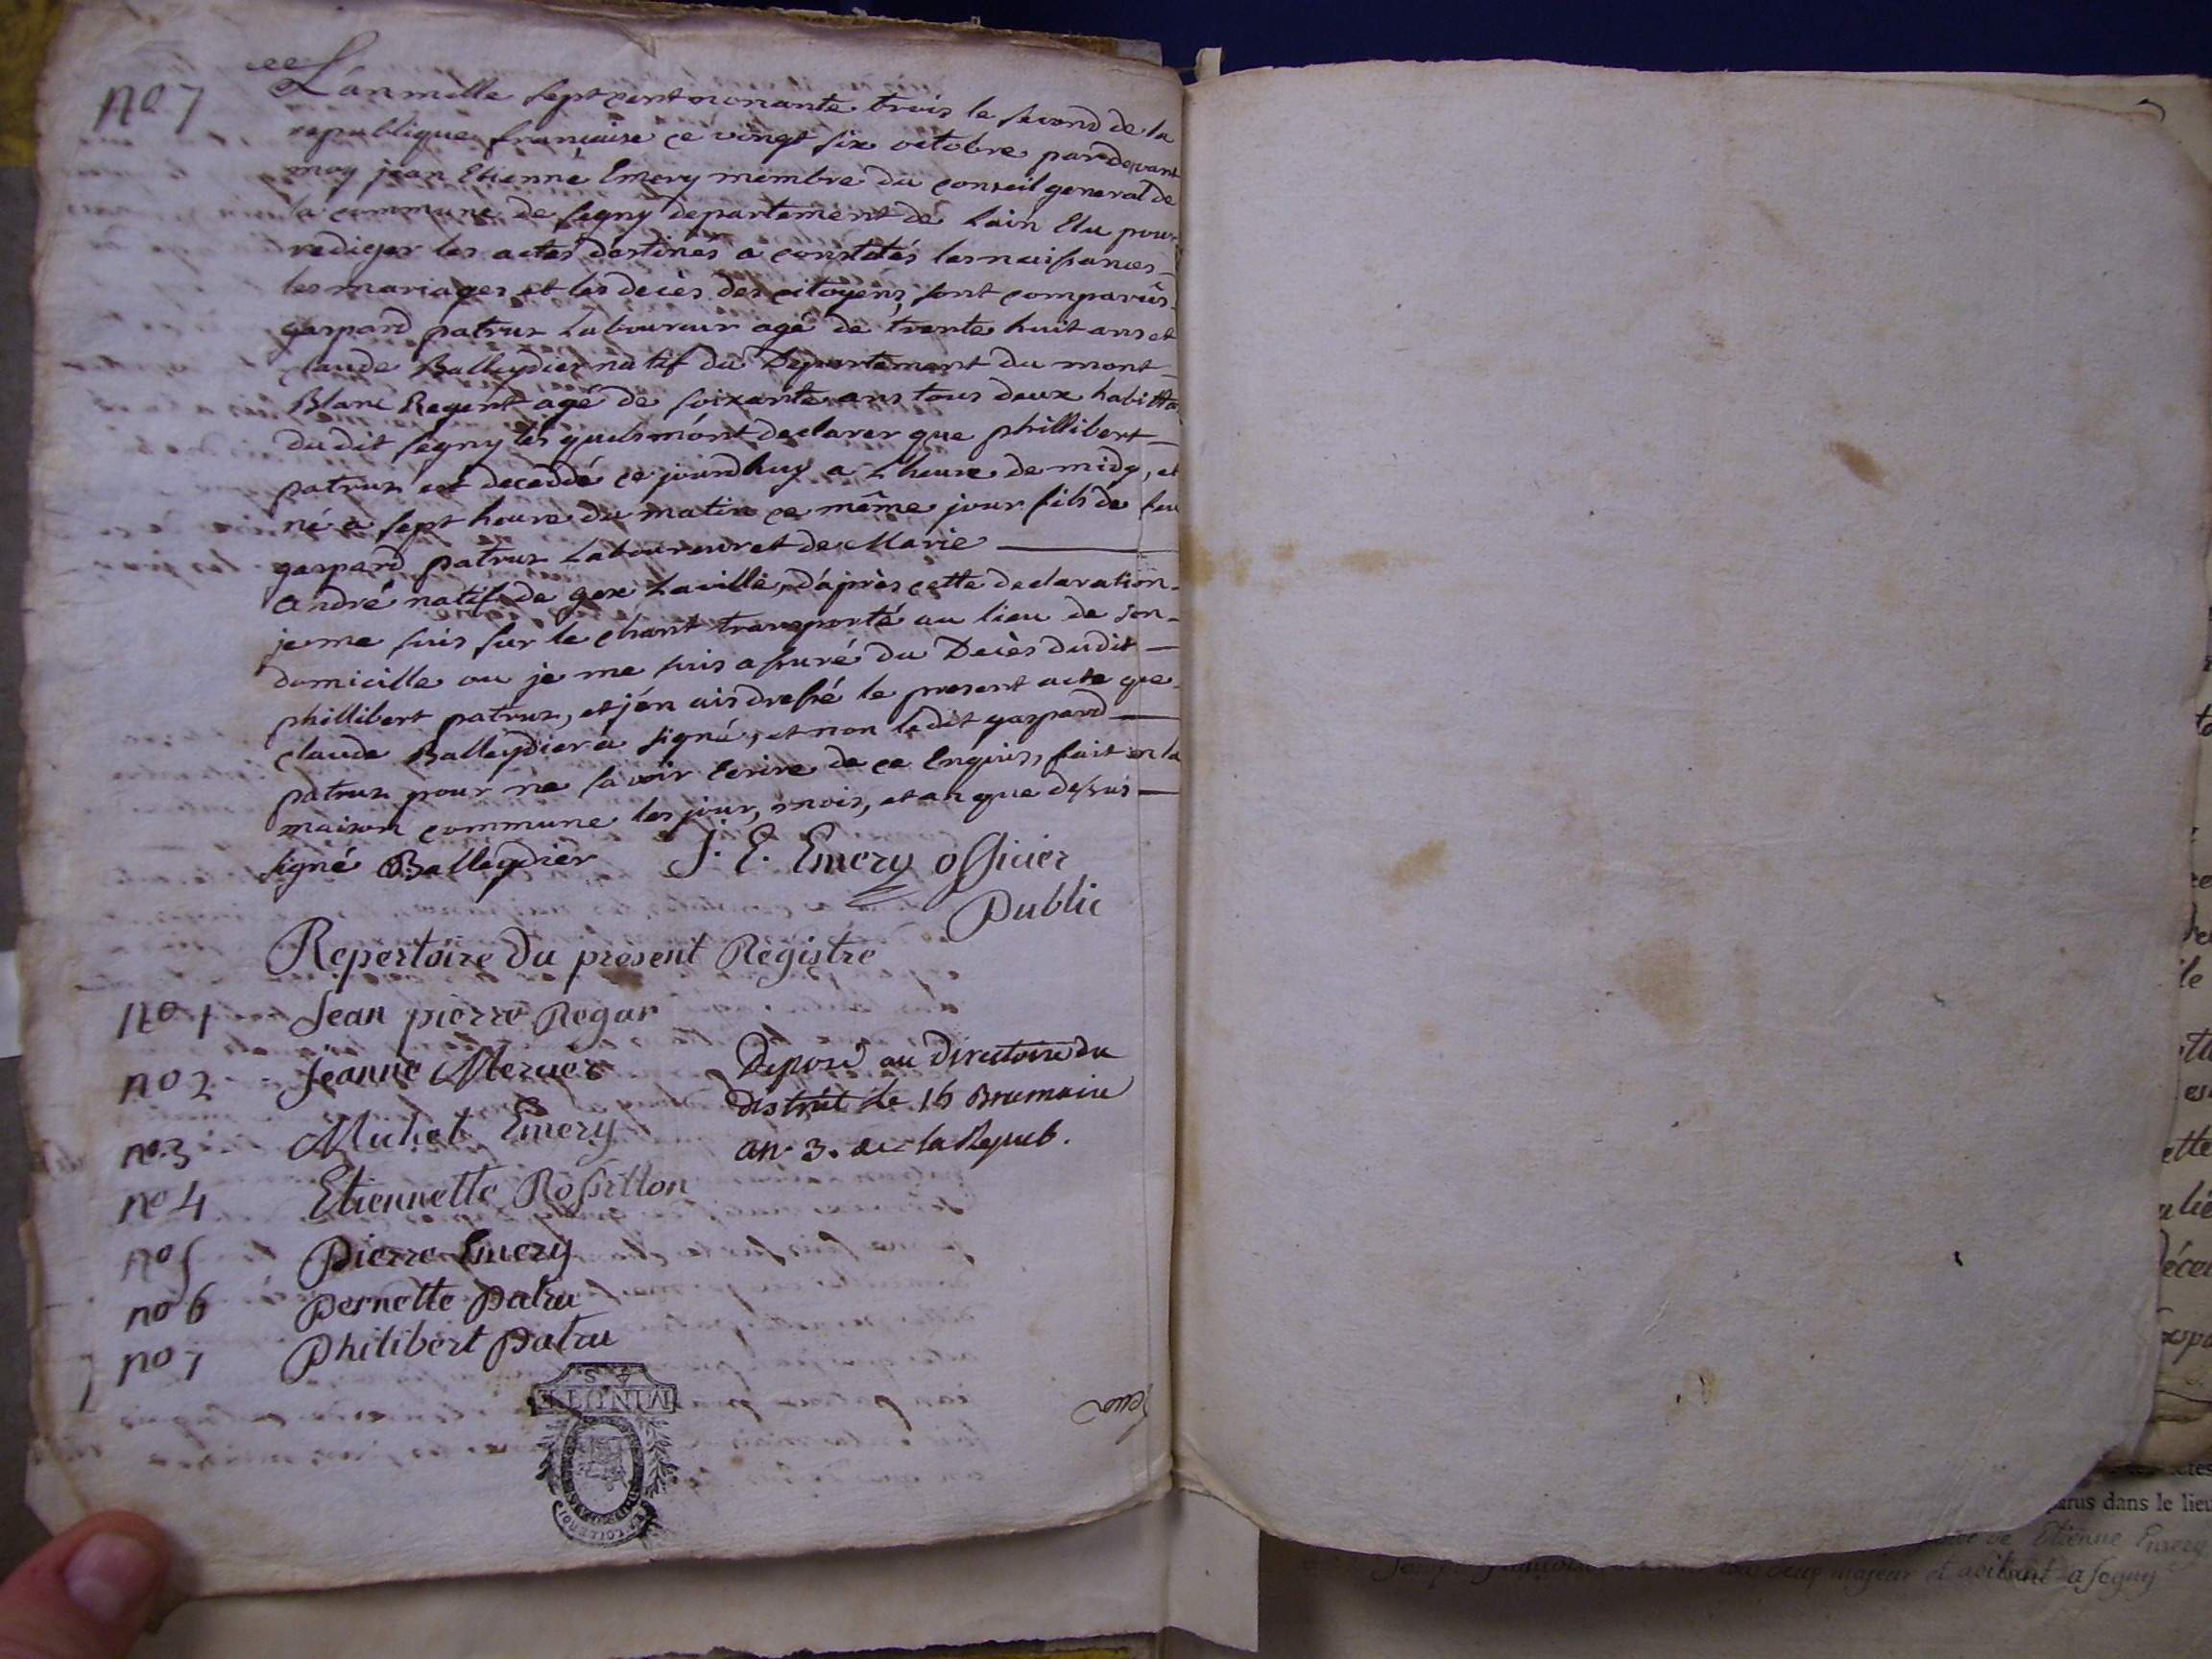 no 7
L'an mille sept cent nonante trois le second de la
republique francaise ce vingt six octobre pardevant
moy jean Etienne Emery membre du conseil general de
la commune de segny departement de Lain Elu pour
rediger les actes destinés a constatés les naissances
les mariages et les decès des citoyens, sont comparûs
gaspard patruz Laboureur agé de trente huit ans et
claude Balleydier natif du Departement du mont
Blanc Regent agé de soixante ans tous deux habitta
du dit segny lesquels m'ont declarer que phillibert
patruz est deceddé ce jourdhuy a Lheure de midy, et
né a sept heure du matin ce même jour fils de feu
gaspard patruz Laboureur et de Marie
André natif de gex Laville, d'après cette declaration
je me suis sur le chant transporté au lieu de son
domicille ou je me suis assuré du Decès dudit
phillibert patruz, et j'en ais dressé le present acte que
claude Balleydier a signé, et non ledit gaspard
patruz pour ne savoir Ecrire de ce Enquis, fait en la
maison commune les jour, mois, et an que dessus
signé Balleydier J. E. Emery officier
Public
Repertoire du present Registre
no 1 Jean pierre Regar
no 2 Jeanne Mercier
no 3 Michel Emery
no 4 Etiennette Rossitton
no 5 Pierre Emery
no 6 Pernette Patru
no 7 Philibert Patru
Deposé au Directoire du
district le 16 Brumaire
an 3. de la Repub.
MINUTE
arus dans le lieu
de Etienne Emery
majeur et abitant a segny